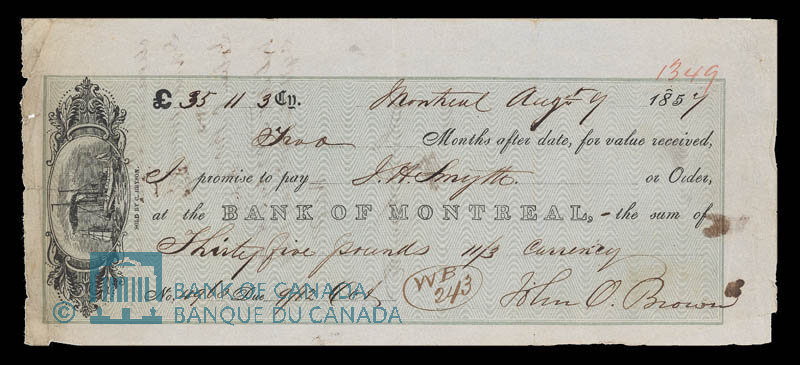 1349
£ 35 11 3 Cy. Montreal Augt 7 1857
Two Months after date, for value received,
I promise to pay J. H. Smyth or Order,
at the BANK OF MONTREAL, - the sum of
Thirty five pounds 11/3 currency
No. Due Oct
W B
24/3
John O. Brown
SOLD BY
© BANK OF CANADA
BANQUE DU CANADA